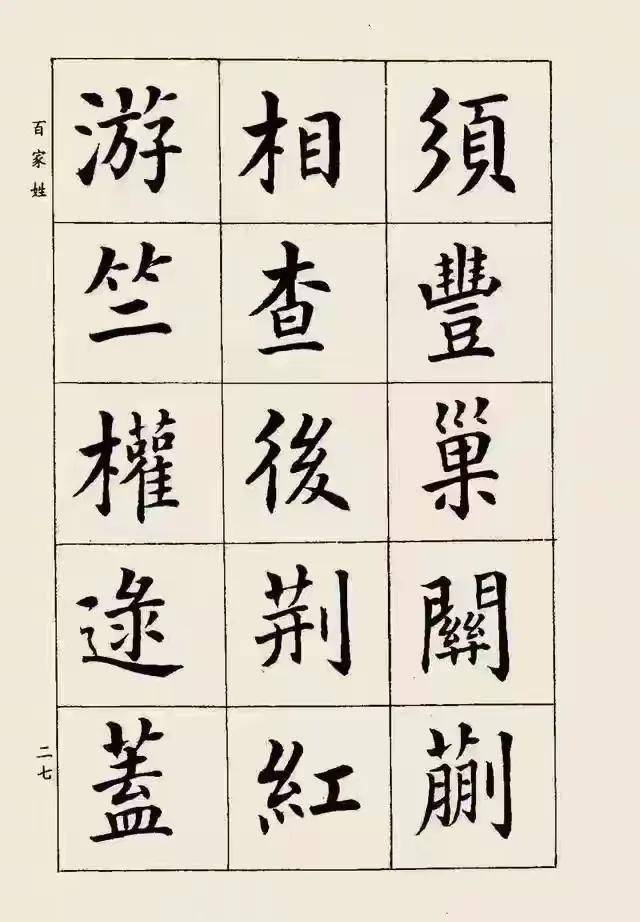 須豐巢關蒯
相查後荆紅
游竺權逯蓋
百家姓
二七